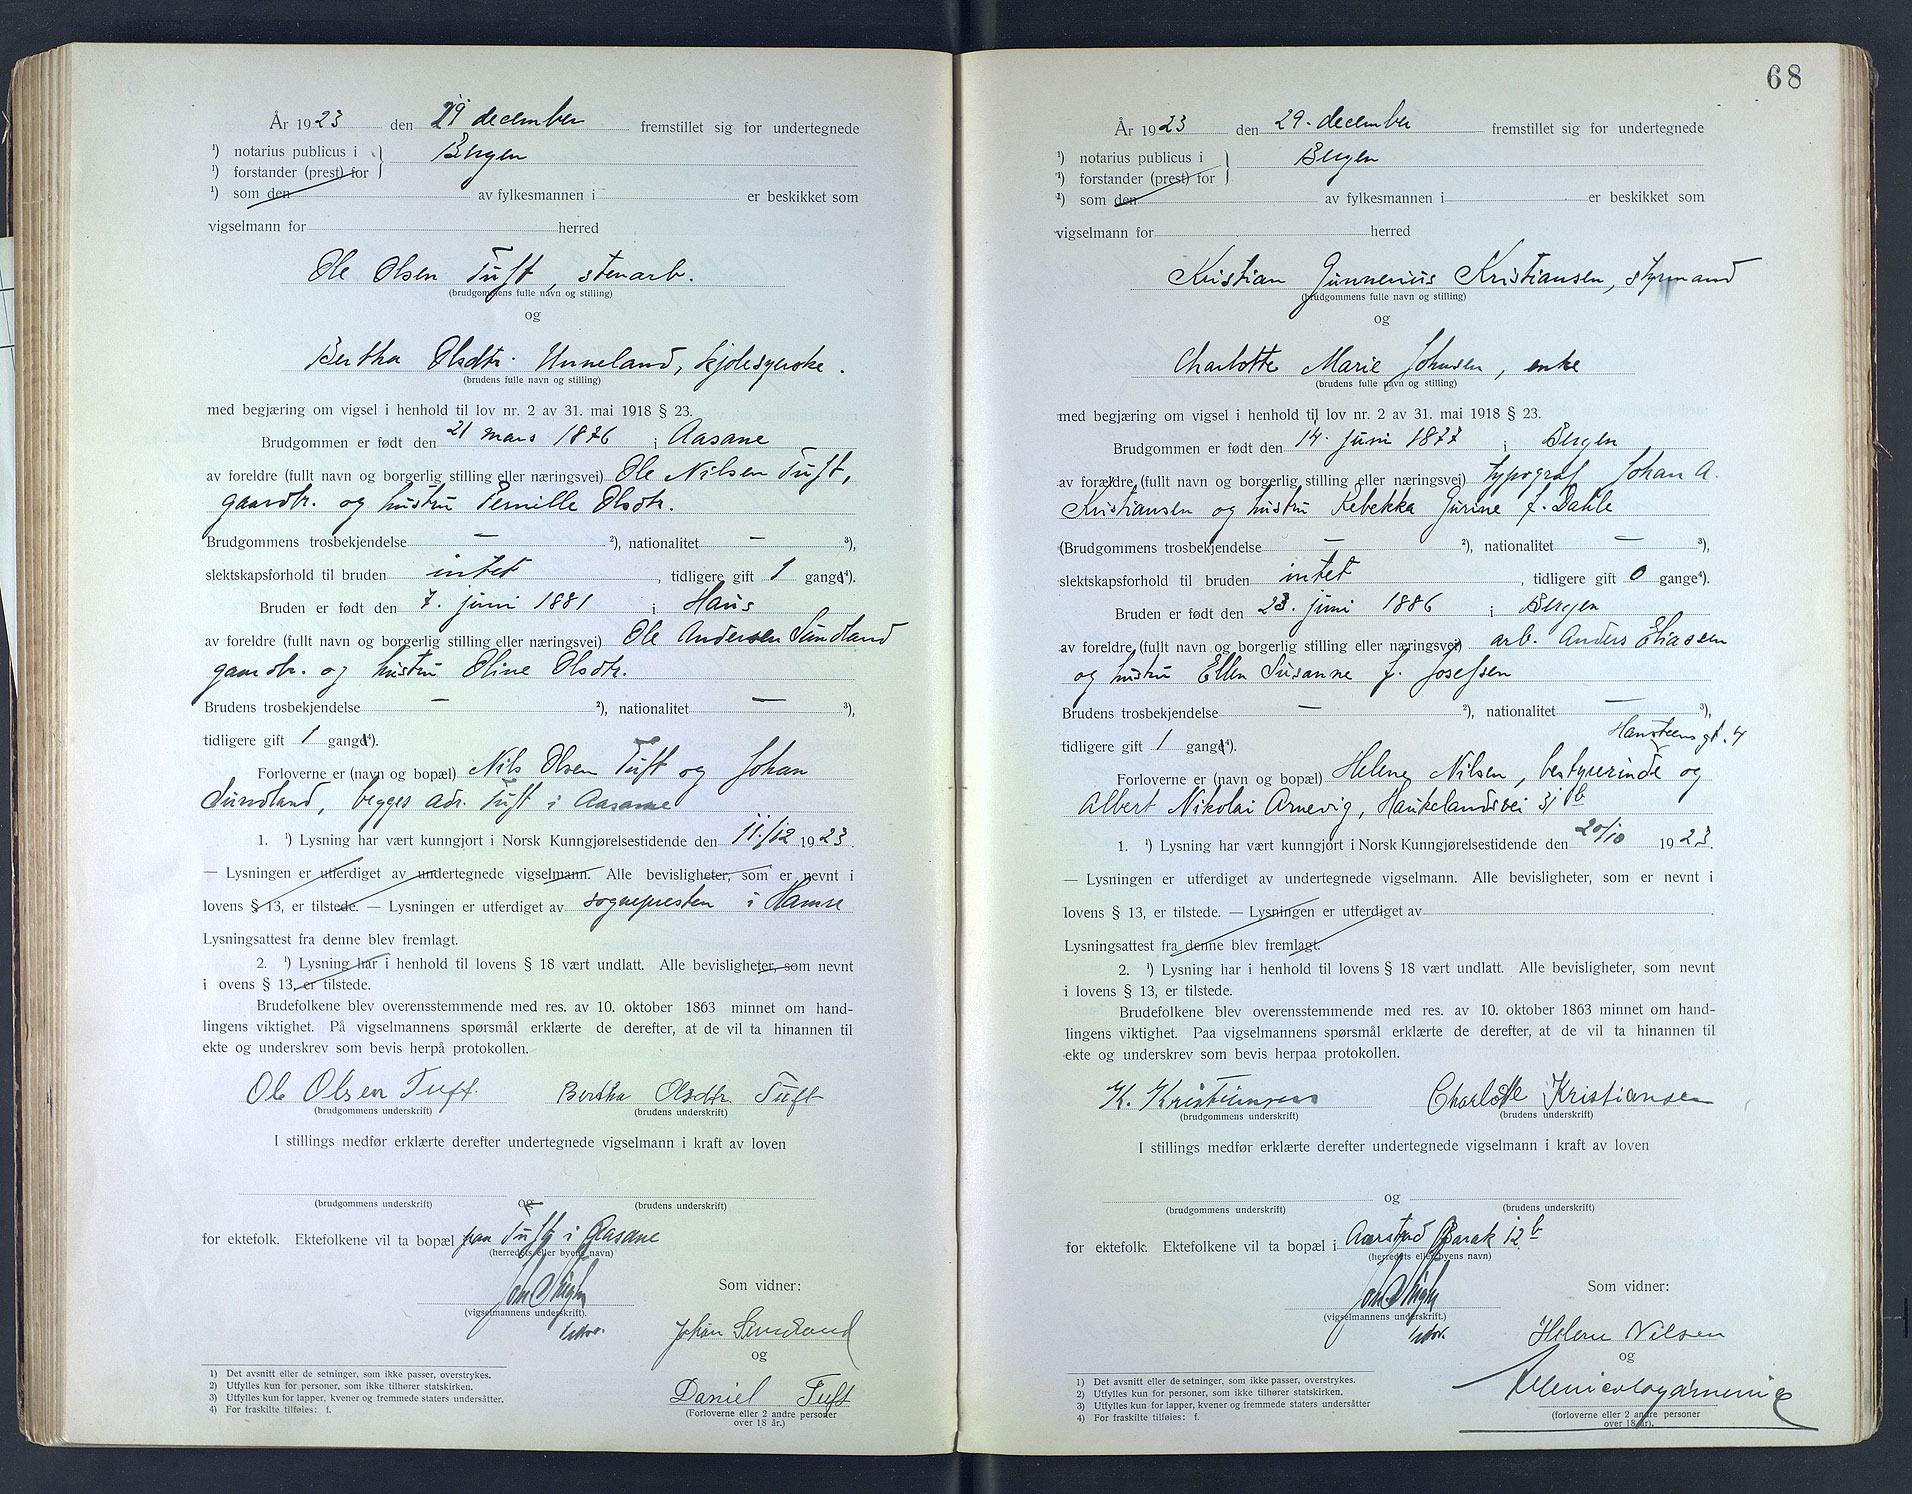 År 1923 den 29 december fremstillet sig for undertegnede
¹) notarius publicus i } Bergen
¹) forstander (prest) for
¹) som den av fylkesmannen i er beskikket som
vigselmann for herred
Ole Olsen Tuft, stenarb.
(brudgommens fulle navn og stilling)
og
Bertha Olsdtr. Unneland, kjolesyerske.
(brudens fulle navn og stilling)
med begjæring om vigsel i henhold til lov nr. 2 av 31. mai 1918 § 23.
Brudgommen er født den 21 mars 1876 i Aasane
av foreldre (fullt navn og borgerlig stilling eller næringsvei) Ole Nilsen Tuft,
gaardbr. og hustru Pernille Olsdtr.
Brudgommens trosbekjendelse — ²), nationalitet — ³),
slektskapsforhold til bruden intet, tidligere gift 1 gang⁴).
Bruden er født den 7. juni 1881 i Haus
av foreldre (fullt navn og borgerlig stilling eller næringsvei) Ole Andersen Sundland
gaardbr. og hustru Oline Olsdtr.
Brudens trosbekjendelse — ²), nationalitet — ³),
tidligere gift 1 gang⁴).
Forloverne er (navn og bopæl) Nils Olsen Tuft og Johan
Sundland, begges adr. Tuft i Aasane
1. ¹) Lysning har vært kunngjort i Norsk Kunngjørelsestidende den 11/12 1923.
— Lysningen er utferdiget av undertegnede vigselmann. Alle bevisligheter, som er nevnt i
lovens § 13, er tilstede. — Lysningen er utferdiget av sognepresten i Hamre
Lysningsattest fra denne blev fremlagt.
2. ¹) Lysning har i henhold til lovens § 18 vært undlatt. Alle bevisligheter, som nevnt
i ovens § 13, er tilstede.
Brudefolkene blev overensstemmende med res. av 10. oktober 1863 minnet om hand-
lingens viktighet. På vigselmannens spørsmål erklærte de derefter, at de vil ta hinannen til
ekte og underskrev som bevis herpå protokollen.
Ole Olsen Tuft. Bertha Olsdtr. Tuft
(brudgommens underskrift) (brudens underskrift)
I stillings medfør erklærte derefter undertegnede vigselmann i kraft av loven
og
(brudgommens underskrift) (brudens underskrift)
for ektefolk. Ektefolkene vil ta bopæl paa Tuft i Aasane
(herredets eller byens navn)
Som vidner:
(vigselmannens underskrift).
Johan Sundland
og
Daniel Tuft
(Forloverne eller 2 andre personer
over 18 år.)
1) Det avsnitt eller de setninger, som ikke passer, overstrykes.
2) Utfylles kun for personer, som ikke tilhører statskirken.
3) Utfylles kun for lapper, kvener og fremmede staters undersåtter.
4) For fraskilte tilføies: f.
68
År 1923 den 29. december fremstillet sig for undertegnede
¹) notarius publicus i } Bergen
¹) forstander (prest) for
²) som den av fylkesmannen i er beskikket som
vigselmann for herred
Kristian Gunnerius Kristiansen, styrmand
(brudgommens fulle navn og stilling)
og
Charlotte Marie Johnsen, enke
(brudens fulle navn og stilling)
med begjæring om vigsel i henhold til lov nr. 2 av 31. mai 1918 § 23.
Brudgommen er født den 14. juni 1877 i Bergen
av forældre (fullt navn og borgerlig stilling eller næringsvei) typograf Johan A.
Kristiansen og hustru Rebekka Gurine f. Dahle
(Brudgommens trosbekjendelse — ²), nationalitet — ³),
slektskapsforhold til bruden intet, tidligere gift 0 gange⁴).
Bruden er født den 23. juni 1886 i Bergen
av foreldre (fullt navn og borgerlig stilling eller næringsvei) arb. Anders Eliassen
og hustru Ellen Susanne f. Josefsen
Brudens trosbekjendelse — ²), nationalitet — ³),
tidligere gift 1 gang⁴). Hansteensgt. 4
Forloverne er (navn og bopæl) Helene Nilsen, bestyrerinde og
Albert Nikolai Arnevig, Haukelandsvei 31 b
1. ¹) Lysning har vært kunngjort i Norsk Kunngjørelsestidende den 20/10 1923.
— Lysningen er utferdiget av undertegnede vigselmann. Alle bevisligheter, som er nevnt i
lovens § 13, er tilstede. — Lysningen er utferdiget av
Lysningsattest fra denne blev fremlagt.
2. ¹) Lysning har i henhold til lovens § 18 vært undlatt. Alle bevisligheter, som nevnt
i lovens § 13, er tilstede.
Brudefolkene blev overensstemmende med res. av 10. oktober 1863 minnet om hand-
lingens viktighet. Paa vigselmannens spørsmål erklærte de derefter, at de vil ta hinannen til
ekte og underskrev som bevis herpaa protokollen.
K. Kristiansen Charlotte Kristiansen
(brudgommens underskrift) (brudens underskrift)
I stillings medfør erklærte derefter undertegnede vigselmann i kraft av loven
og
(brudgommens underskrift) (brudens underskrift)
for ektefolk. Ektefolkene vil ta bopæl i Aarstad Barak 12 b
(herredets eller byens navn)
Som vidner:
(vigselmannens underskrift.)
Helene Nilsen
og
(forloverne eller 2 andre personer
over 18 år).
1) Det avsnitt eller de setninger, som ikke passer, overstrykes.
2) Utfylles kun for personer, som ikke tilhører statskirken.
3) Utfylles kun for lapper, kvener og fremmede staters undersåtter
4) For fraskilte tilføies: f.